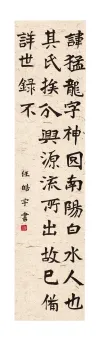 諱猛龍字神冏南陽白水人也
其氏族分興源流所出故已備
詳世錄不
任皓宇書